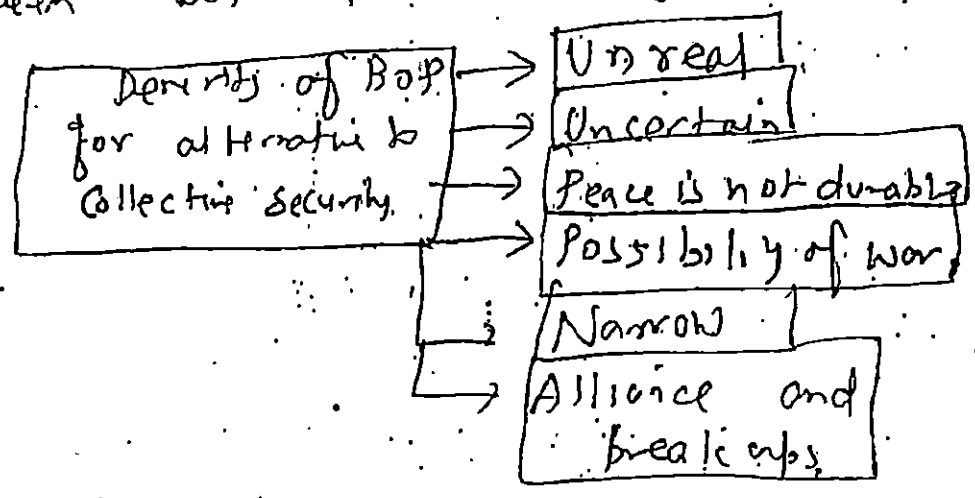 Demerits of BOP
for alternative to
Collective Security.
Unreal
Uncertain
Peace is not durable
Possibility of war
Narrow
Alliance and
breakups